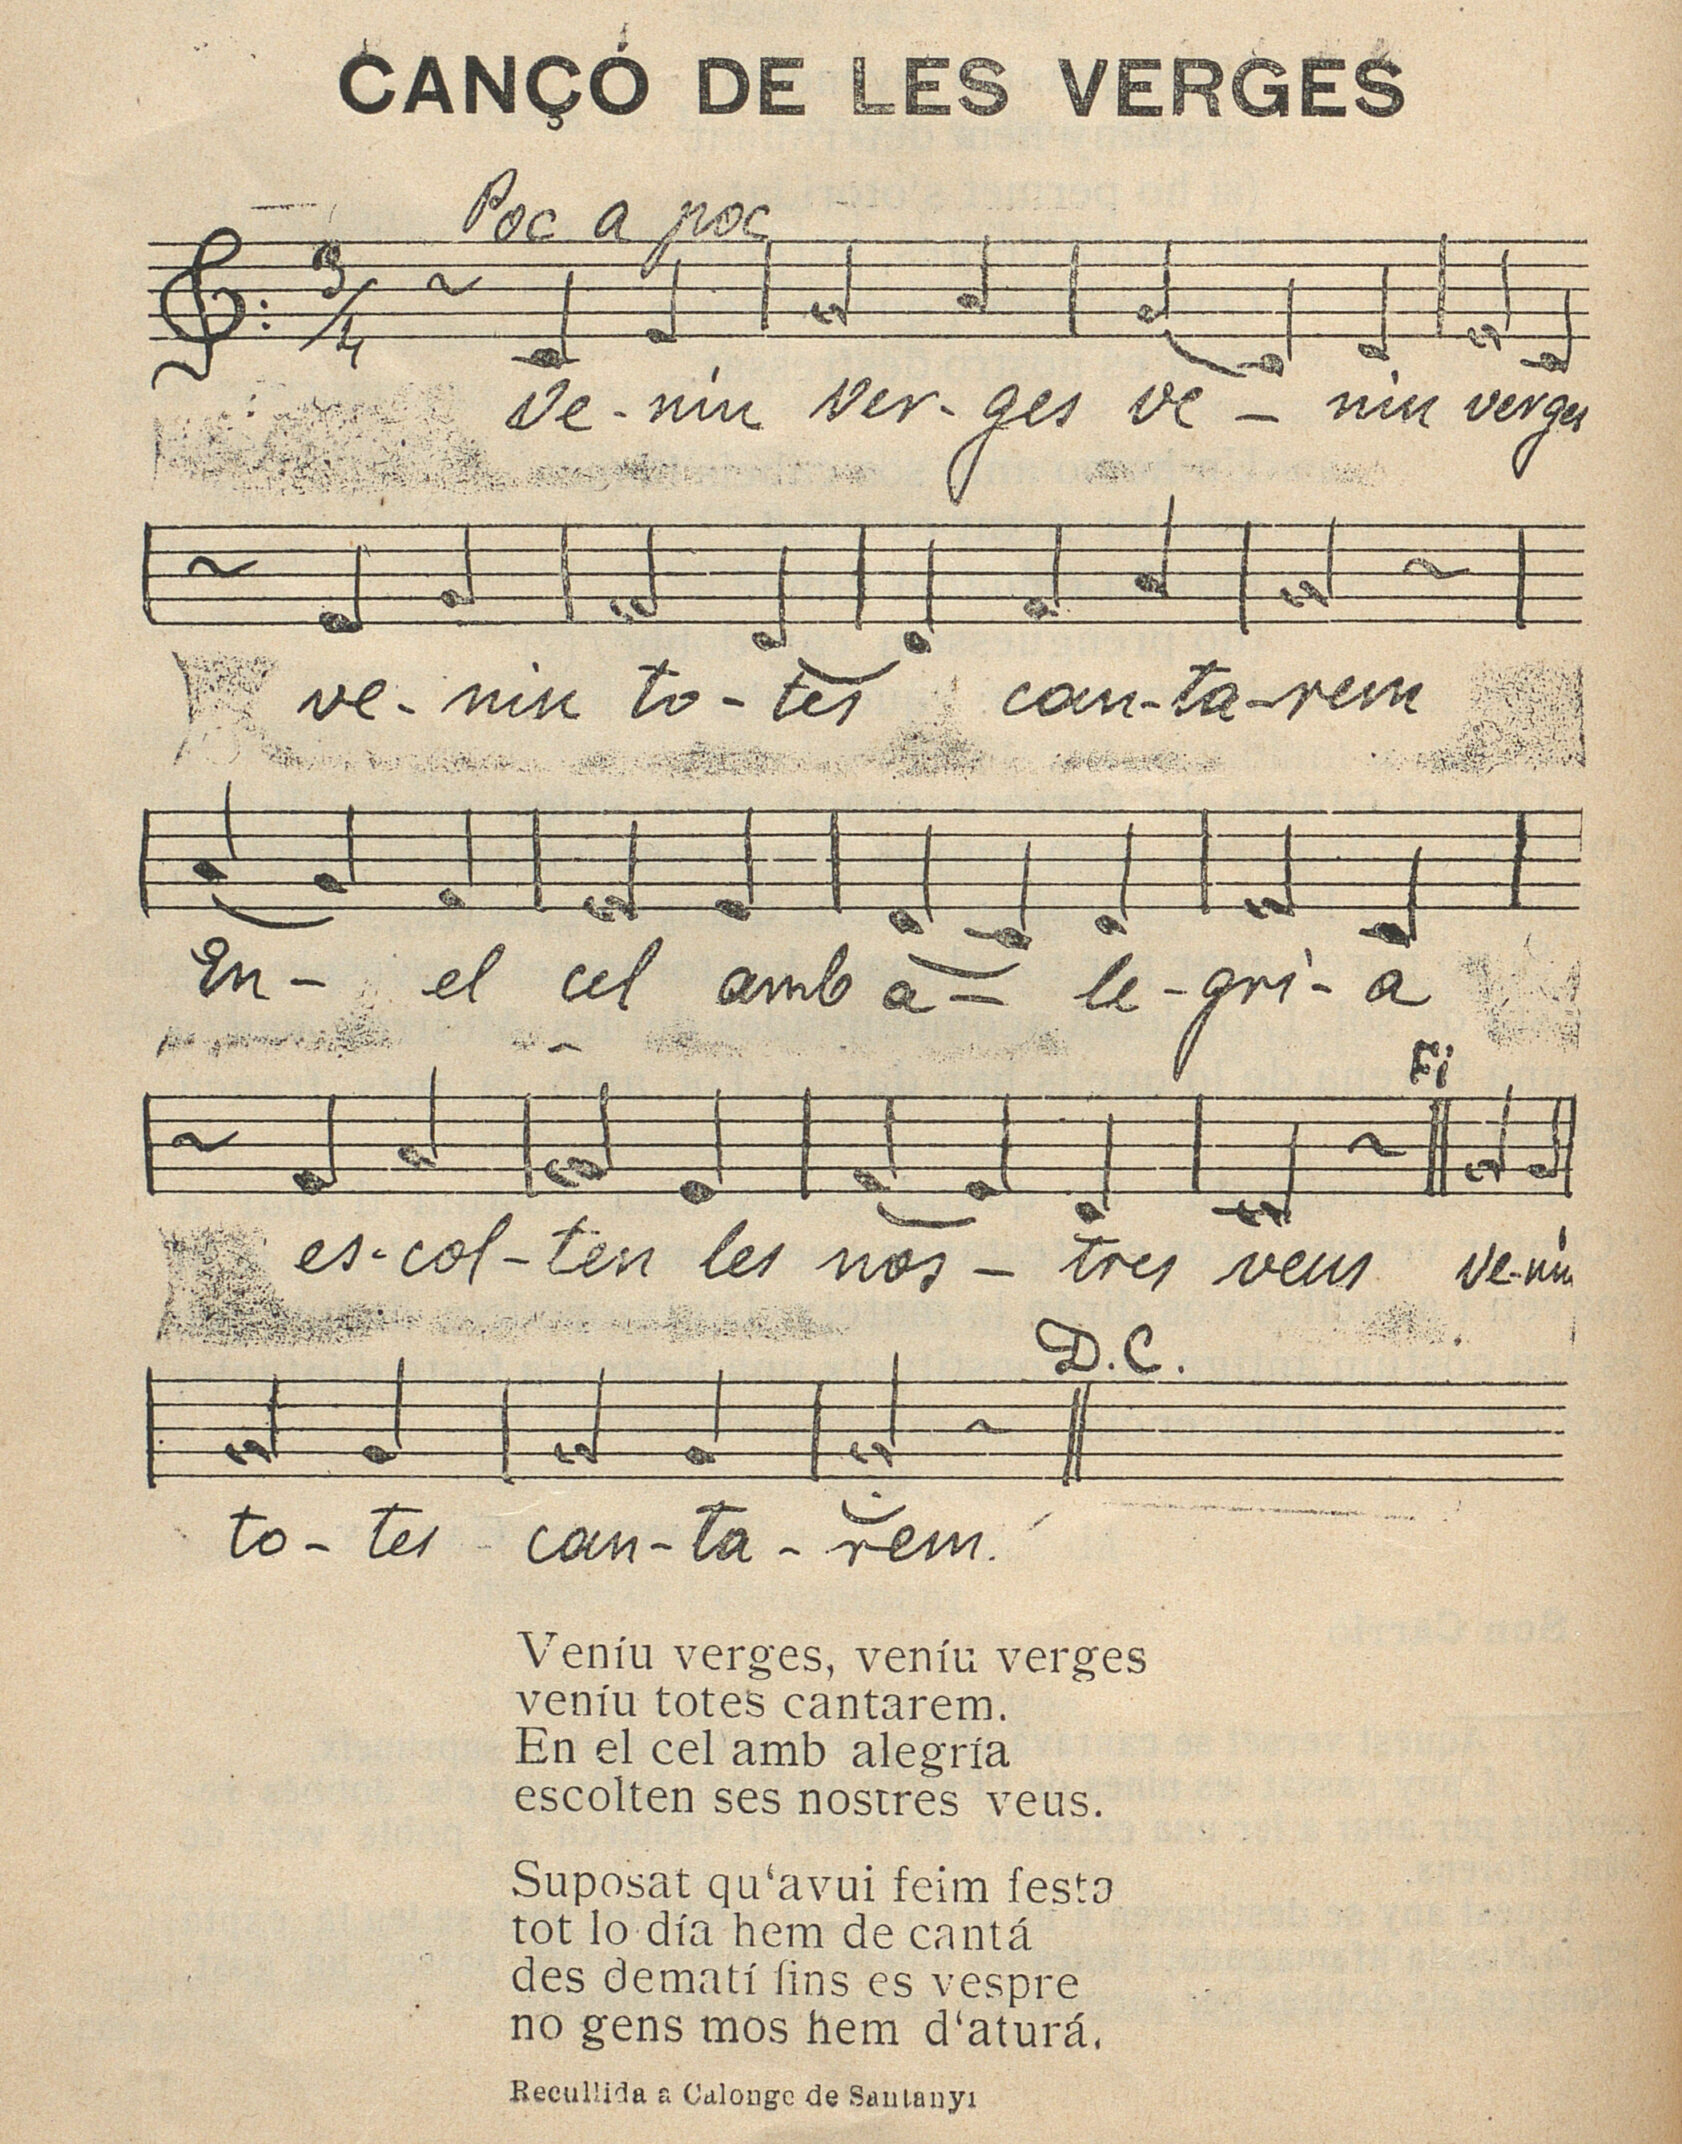 CANÇÓ DE LES VERGES
Poc a poc
3/4
Ve-niu ver-ges ve- niu verges
ve-niu to-tes can-ta-rem
En- el cel amb a- le-gri-a
Fi
es-col-ten les nos- tres veus ve-niu
D.C.
to-tes can-ta-rem.
Veníu verges, veníu verges
veníu totes cantarem.
En el cel amb alegría
escolten ses nostres veus.
Suposat qu‘avui feim festa
tot lo día hem de cantá
des dematí fins es vespre
no gens mos hem d‘aturá.
Recullida a Calonge de Santanyi